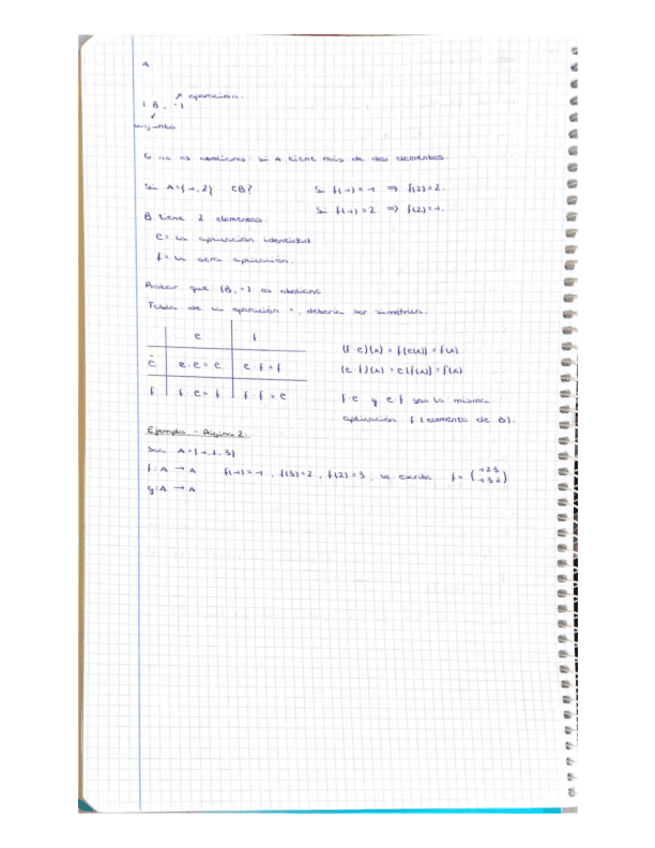 A
operación.
(B, ·)
conjunto
G no es abeliano si A tiene más de dos elementos.
Sea A={1,2} ¿B? Si f(1)=1 ⇒ f(2)=2.
Si f(1)=2 ⇒ f(2)=1.
B tiene 2 elementos.
e = la aplicación identidad
f = la otra aplicación.
Probar que (B, ·) es abeliano
Tabla de la operación ·, debería ser simétrica.
e f
e e·e=e e·f=f
f f·e=f f·f=e
(f·e)(x) = f(e(x)) = f(x)
(e·f)(x) = e(f(x)) = f(x)
f·e y e·f son la misma
aplicación f (elemento de B).
Ejemplo - Página 2.
Sea A={1,2,3}
f:A → A f(1)=1, f(3)=2, f(2)=3, se escribe f= (1 2 3
1 3 2)
g:A → A